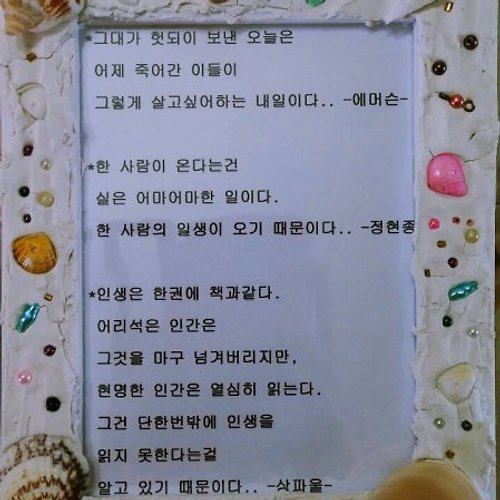 *그대가 헛되이 보낸 오늘은
어제 죽어간 이들이
그렇게 살고싶어하는 내일이다.. -에머슨-
*한 사람이 온다는건
실은 어마어마한 일이다.
한 사람의 일생이 오기 때문이다.. -정현종
*인생은 한권에 책과같다.
어리석은 인간은
그것을 마구 넘겨버리지만,
현명한 인간은 열심히 읽는다.
그건 단한번밖에 인생을
읽지 못한다는걸
알고 있기 때문이다.. -삿파울-